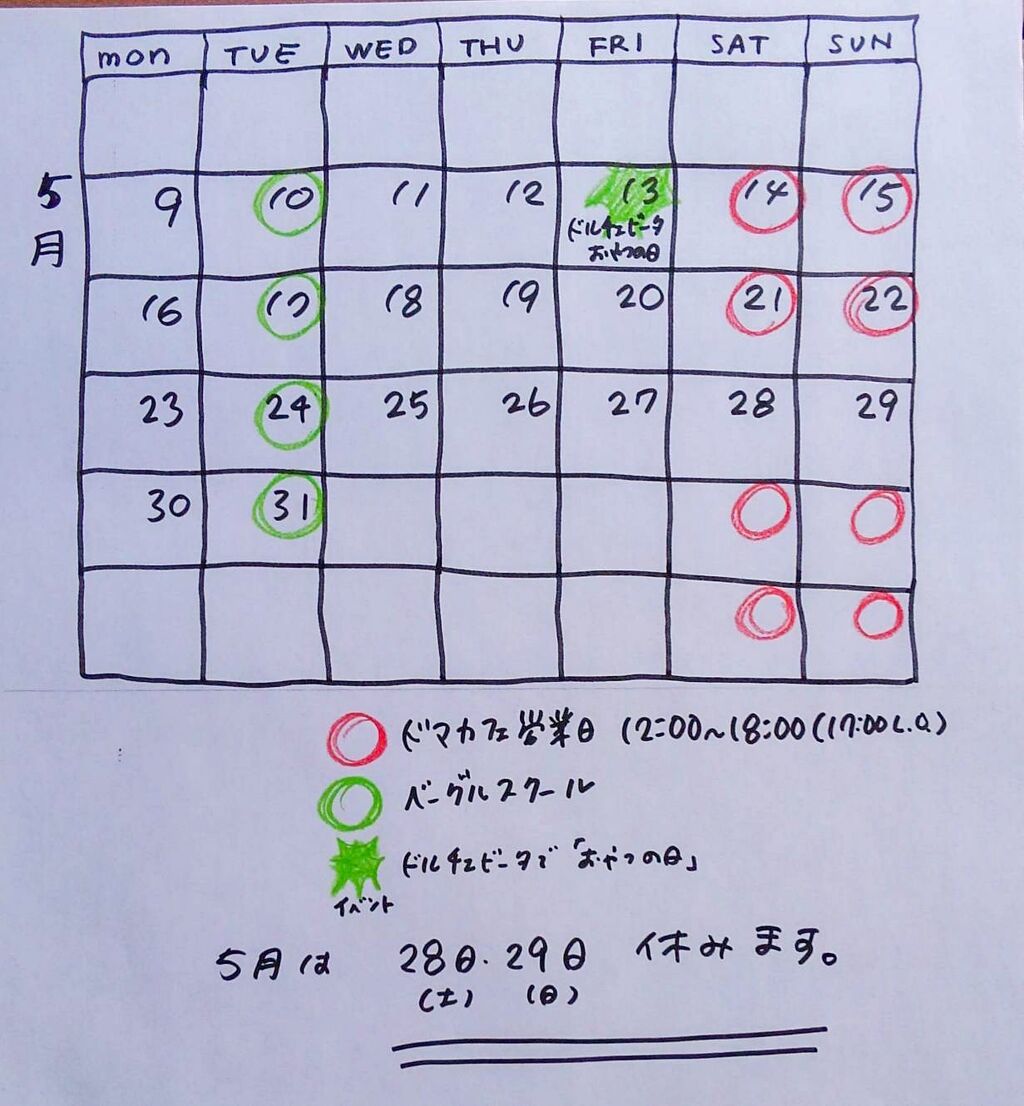 mon TUE WED THU FRI SAT SUN
5月
9 10 11 12 13 14 15
ドルチェビータ
おやつの日
16 17 18 19 20 21 22
23 24 25 26 27 28 29
30 31
ドマカフェ営業日 12:00~18:00(17:00L.O.)
ベーグルスクール
ドルチェビータで「おやつの日」
イベント
5月は 28日.29日 休みます。
(土) (日)